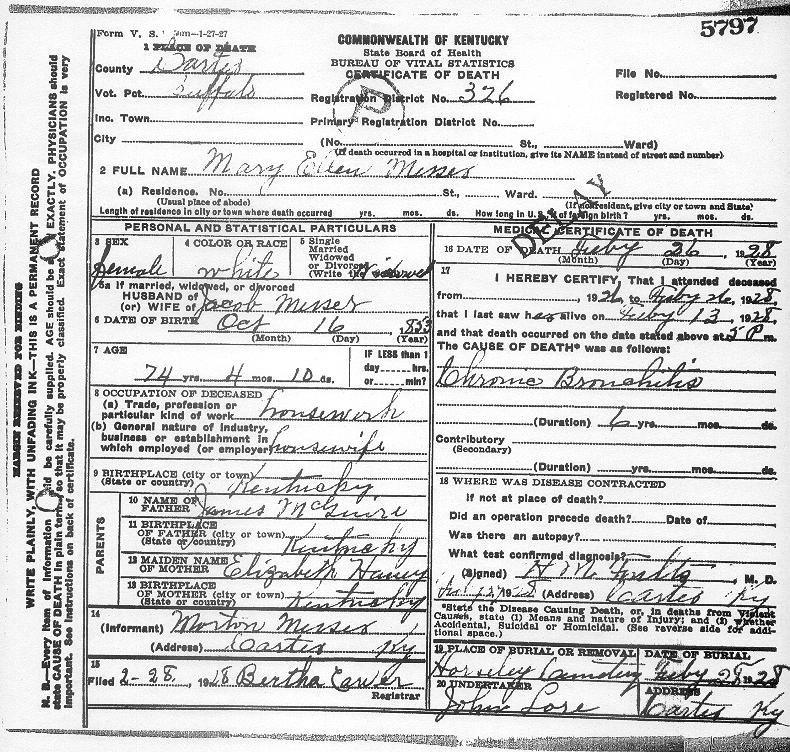 5797
Form V. S. 1-27-27
COMMONWEALTH OF KENTUCKY
State Board of Health
BUREAU OF VITAL STATISTICS
CERTIFICATE OF DEATH
1 PLACE OF DEATH
County Carter
Vot. Pct. Buffalo
Inc. Town
City
File No.
Registration District No. 326
Registered No.
Primary Registration District No.
(No. St., Ward)
(If death occurred in a hospital or institution, give its NAME instead of street and number)
2 FULL NAME Mary Ellen Messer
(a) Residence. No. St., Ward.
(Usual place of abode) (If nonresident, give city or town and State)
Length of residence in city or town where death occurred yrs. mos. ds. How long in U. S. of foreign birth? yrs. mos. ds.
DELAY
MARGIN RESERVED FOR BINDING
WRITE PLAINLY, WITH UNFADING INK—THIS IS A PERMANENT RECORD
N. B.—Every item of information should be carefully supplied. AGE should be EXACTLY. PHYSICIANS should
state CAUSE OF DEATH in plain terms, so that it may be properly classified. Exact statement of OCCUPATION is very
important. See instructions on back of certificate.
PERSONAL AND STATISTICAL PARTICULARS
3 SEX
female
4 COLOR OR RACE
white
5 Single
Married
Widowed
or Divorced
(Write the Widowed
5a If married, widowed, or divorced
HUSBAND of
(or) WIFE of Jacob Messer
6 DATE OF BIRTH Oct 16 1853
(Month) (Day) (Year)
7 AGE
74 yrs. 4 mos. 10 ds.
IF LESS than 1
day hrs.
or min?
8 OCCUPATION OF DECEASED
(a) Trade, profession or
particular kind of work housework
(b) General nature of industry,
business or establishment in
which employed (or employer) housewife
9 BIRTHPLACE (city or town)
(State or country) Kentucky
PARENTS
10 NAME OF
FATHER James McGuire
11 BIRTHPLACE
OF FATHER (city or town)
(State or country) Kentucky
12 MAIDEN NAME
OF MOTHER Elizabeth
13 BIRTHPLACE
OF MOTHER (city or town)
(State or country) Kentucky
14
(Informant) Morton Messer
(Address) Carter Ky
15
Filed 2-28, 1928 Bertha
Registrar
MEDICAL CERTIFICATE OF DEATH
16 DATE OF DEATH Feby 26, 1928
(Month) (Day) (Year)
17
I HEREBY CERTIFY, That I attended deceased
from 1926, to Feby 26, 1928,
that I last saw her alive on Feby 13, 1928,
and that death occurred on the date stated above at 5 P m.
The CAUSE OF DEATH* was as follows:
Chronic Bronchitis
(Duration) 6 yrs. mos. ds.
Contributory
(Secondary)
(Duration) yrs. mos. ds.
18 WHERE WAS DISEASE CONTRACTED
If not at place of death?
Did an operation precede death? Date of
Was there an autopsy?
What test confirmed diagnosis?
(Signed) H M , M. D.
1928 (Address) Carter Ky
*State the Disease Causing Death, or, in deaths from Violent
Causes, state (1) Means and nature of Injury; and (2) whether
Accidental, Suicidal or Homicidal. (See reverse side for addi-
tional space.)
19 PLACE OF BURIAL OR REMOVAL
Horseley Cemetery
DATE OF BURIAL
Feby 28 1928
20 UNDERTAKER
John Lore
ADDRESS
Carter Ky